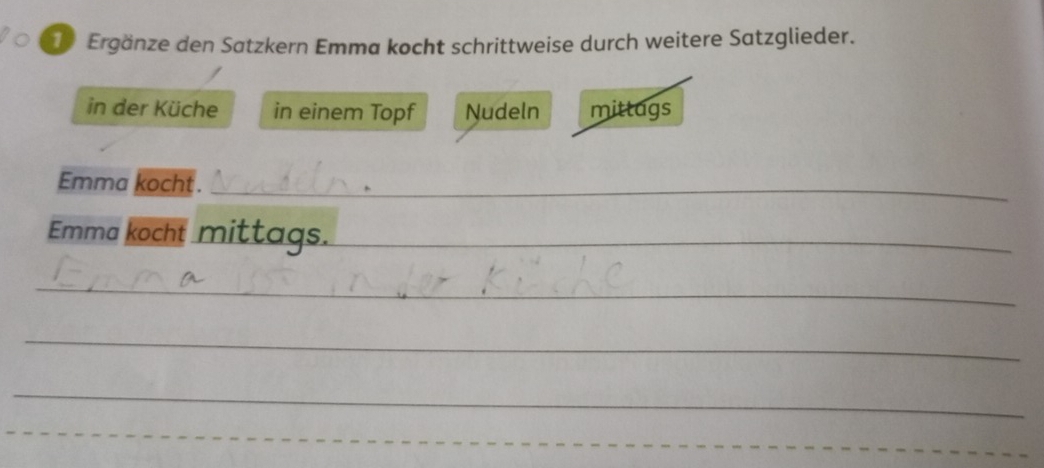 1 Ergänze den Satzkern Emma kocht schrittweise durch weitere Satzglieder.
in der Küche in einem Topf Nudeln mittags
Emma kocht. Nudeln.
Emma kocht mittags.
Emma ist in der Küche